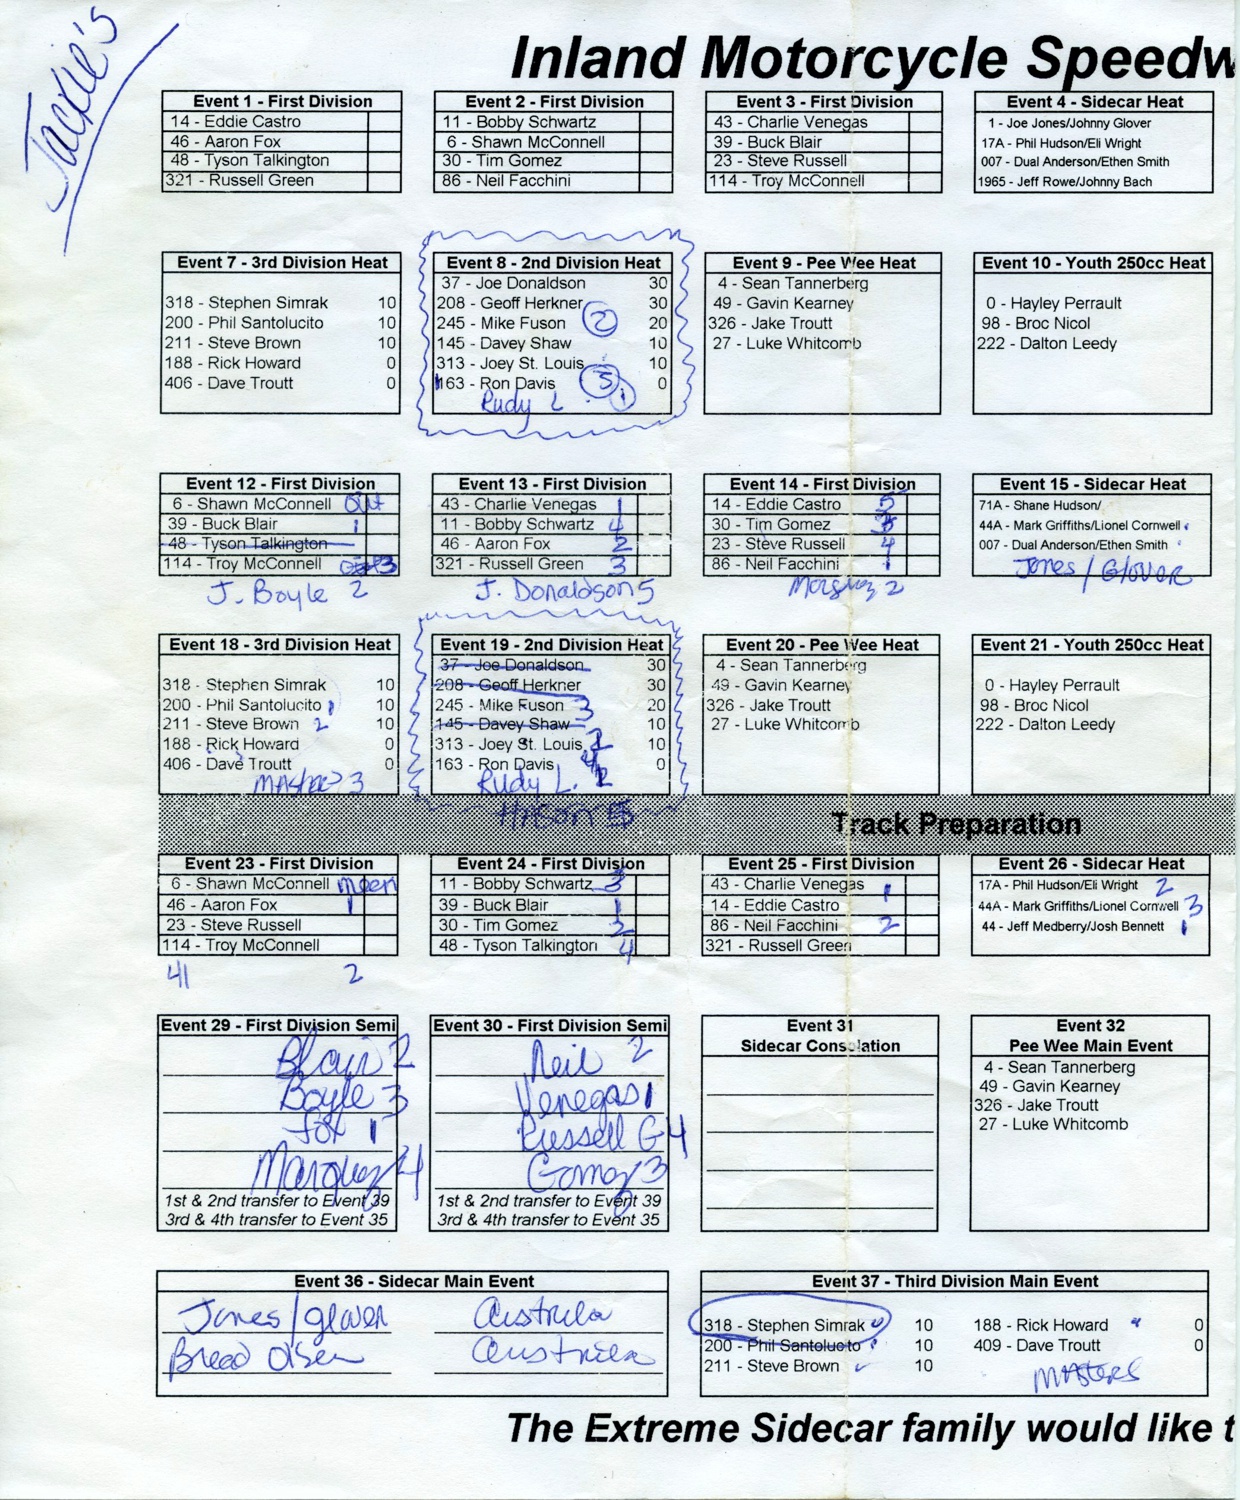 Jackie's
Inland Motorcycle Speedw
Event 1 - First Division
14 - Eddie Castro
46 - Aaron Fox
48 - Tyson Talkington
321 - Russell Green
Event 2 - First Division
11 - Bobby Schwartz
6 - Shawn McConnell
30 - Tim Gomez
86 - Neil Facchini
Event 3 - First Division
43 - Charlie Venegas
39 - Buck Blair
23 - Steve Russell
114 - Troy McConnell
Event 4 - Sidecar Heat
1 - Joe Jones/Johnny Glover
17A - Phil Hudson/Eli Wright
007 - Dual Anderson/Ethen Smith
1965 - Jeff Rowe/Johnny Bach
Event 7 - 3rd Division Heat
318 - Stephen Simrak 10
200 - Phil Santolucito 10
211 - Steve Brown 10
188 - Rick Howard 0
406 - Dave Troutt 0
Event 8 - 2nd Division Heat
37 - Joe Donaldson 30
208 - Geoff Herkner 30
245 - Mike Fuson 2 20
145 - Davey Shaw 10
313 - Joey St. Louis 10
163 - Ron Davis 3 0
Rudy L 1
Event 9 - Pee Wee Heat
4 - Sean Tannerberg
49 - Gavin Kearney
326 - Jake Troutt
27 - Luke Whitcomb
Event 10 - Youth 250cc Heat
0 - Hayley Perrault
98 - Broc Nicol
222 - Dalton Leedy
Event 12 - First Division
6 - Shawn McConnell out
39 - Buck Blair 1
48 - Tyson Talkington
114 - Troy McConnell 3
J. Boyle 2
Event 13 - First Division
43 - Charlie Venegas 1
11 - Bobby Schwartz 4
46 - Aaron Fox 2
321 - Russell Green 3
J. Donaldson 5
Event 14 - First Division
14 - Eddie Castro 5
30 - Tim Gomez 3
23 - Steve Russell 4
86 - Neil Facchini 1
Marquez 2
Event 15 - Sidecar Heat
71A - Shane Hudson/
44A - Mark Griffiths/Lionel Cornwell
007 - Dual Anderson/Ethen Smith
Jones / Glover
Event 18 - 3rd Division Heat
318 - Stephen Simrak 10
200 - Phil Santolucito 1 10
211 - Steve Brown 2 10
188 - Rick Howard 0
406 - Dave Troutt 0
Masters 3
Event 19 - 2nd Division Heat
37 - Joe Donaldson 30
208 - Geoff Herkner 30
245 - Mike Fuson 3 20
145 - Davey Shaw 10
313 - Joey St. Louis 10
163 - Ron Davis 0
Rudy L.
Event 20 - Pee Wee Heat
4 - Sean Tannerberg
49 - Gavin Kearney
326 - Jake Troutt
27 - Luke Whitcomb
Event 21 - Youth 250cc Heat
0 - Hayley Perrault
98 - Broc Nicol
222 - Dalton Leedy
Track Preparation
Event 23 - First Division
6 - Shawn McConnell
46 - Aaron Fox 1
23 - Steve Russell
114 - Troy McConnell
41 2
Event 24 - First Division
11 - Bobby Schwartz 3
39 - Buck Blair 1
30 - Tim Gomez 2
48 - Tyson Talkington 4
Event 25 - First Division
43 - Charlie Venegas 1
14 - Eddie Castro
86 - Neil Facchini 2
321 - Russell Green
Event 26 - Sidecar Heat
17A - Phil Hudson/Eli Wright 2
44A - Mark Griffiths/Lionel Cornwell 3
44 - Jeff Medberry/Josh Bennett 1
Event 29 - First Division Semi
Blair 2
Boyle 3
fox 1
Marquez 4
1st & 2nd transfer to Event 39
3rd & 4th transfer to Event 35
Event 30 - First Division Semi
Neil 2
Venegas 1
Russell G 4
Gomez 3
1st & 2nd transfer to Event 39
3rd & 4th transfer to Event 35
Event 31
Sidecar Consolation
Event 32
Pee Wee Main Event
4 - Sean Tannerberg
49 - Gavin Kearney
326 - Jake Troutt
27 - Luke Whitcomb
Event 36 - Sidecar Main Event
Jones/glover Austrila
Bread Olsen Austriea
Event 37 - Third Division Main Event
318 - Stephen Simrak 10 188 - Rick Howard 0
200 - Phil Santolucto 10 409 - Dave Troutt 0
211 - Steve Brown 10
Masters
The Extreme Sidecar family would like t